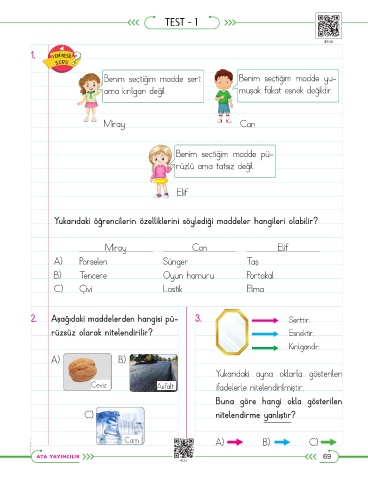 TEST - 1
1.
Benim seçtiğim madde sert
ama kırılgan değil.
Benim seçtiğim madde yu-
muşak fakat esnek değildir.
Miray
Can
Benim seçtiğim madde pü-
rüzlü ama tatsız değil.
Elif
Yukarıdaki öğrencilerin özelliklerini söylediği maddeler hangileri olabilir?
Miray Can Elif
A) Porselen Sünger Taş
B) Tencere Oyun hamuru Portakal
C) Çivi Lastik Elma
2. Aşağıdaki maddelerden hangisi pü-
rüzsüz olarak nitelendirilir?
A) B)
Ceviz Asfalt
C)
Cam
3.
Serttir.
Esnektir.
Kırılgandır.
Yukarıdaki ayna oklarla gösterilen
ifadelerle nitelendirilmiştir.
Buna göre hangi okla gösterilen
nitelendirme yanlıştır?
A) B) C)
ATA YAYINCILIK
69